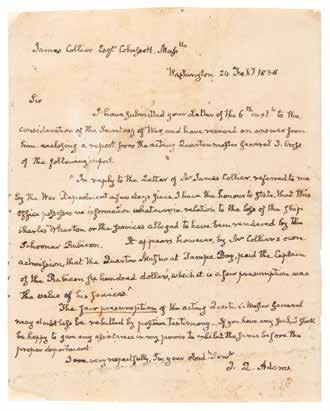 James Collier Esqr. Cohassett, Masstts
Washington 24 Feby 1838
Sir
I have submitted your Letter of the 6th inst to the
consideration of the Secretary of War, and have received an answer from
him enclosing a report from the acting Quartermaster General T. Cross
of the following import.
"In reply to the Letter of Mr James Collier, referred to me
by the War Department a few days since, I have the honour to state, that this
office possesses no information whatever in relation to the loss of the Ship
Charles Wharton or the services alleged to have been rendered by the
Schooner Rubicon. It appears however, by Mr Collier's own
admission, that the Quarter Master at Tampa Bay, paid the Captain
of the Rubicon six hundred dollars, which it is a fair presumption was
the value of his services"
The fair presumption of the acting Quarter Master General
may doubtless be rebutted by positive testimony. If you have any such I shall
be happy to give any assistance in my power to exhibit the same before the
proper department.
I am very respectfully, Sir, your obedt Servt
J. Q. Adams